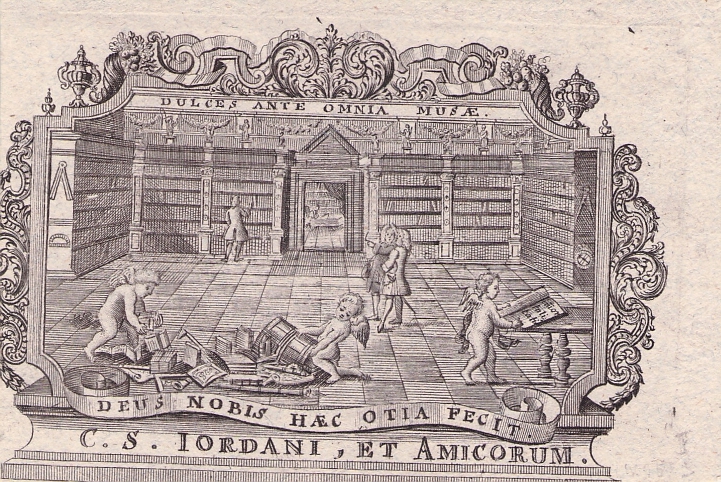 DULCES ANTE OMNIA MUSÆ.
DEUS NOBIS HÆC OTIA FECIT
C. S. IORDANI, ET AMICORUM.